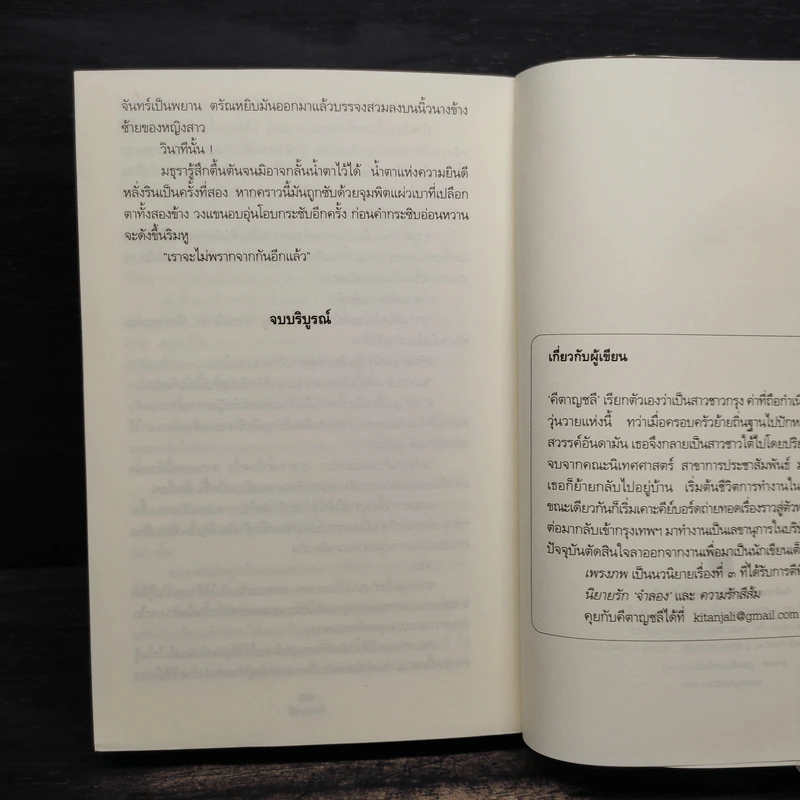 จันทร์เป็นพยาน ตรัณหยิบมันออกมาแล้วบรรจงสวมลงบนนิ้วนางข้าง
ซ้ายของหญิงสาว
วินาทีนั้น !
มธุรารู้สึกตื้นตันจนมิอาจกลั้นน้ำตาไว้ได้ น้ำตาแห่งความยินดี
หลั่งรินเป็นครั้งที่สอง หากคราวนี้มันถูกซับด้วยจุมพิตแผ่วเบาที่เปลือก
ตาทั้งสองข้าง วงแขนอบอุ่นโอบกระชับอีกครั้ง ก่อนคำกระซิบอ่อนหวาน
จะดังขึ้นริมหู
“เราจะไม่พรากจากกันอีกแล้ว”
จบบริบูรณ์
เกี่ยวกับผู้เขียน
‘คีตาญชลี’ เรียกตัวเองว่าเป็นสาวชาวกรุง ค่าที่ถือกำเนิ
วุ่นวายแห่งนี้ ทว่าเมื่อครอบครัวย้ายถิ่นฐานไปปักห
สวรรค์อันดามัน เธอจึงกลายเป็นสาวชาวใต้ไปโดยปริย
จบจากคณะนิเทศศาสตร์ สาขาการประชาสัมพันธ์ ม
เธอก็ย้ายกลับไปอยู่บ้าน เริ่มต้นชีวิตการทำงานใน
ขณะเดียวกันก็เริ่มเคาะคีย์บอร์ดถ่ายทอดเรื่องราวสู่ตัวห
ต่อมากลับเข้ากรุงเทพฯ มาทำงานเป็นเลขานุการในบริษ
ปัจจุบันตัดสินใจลาออกจากงานเพื่อมาเป็นนักเขียนเต็
เพรงภพ เป็นนวนิยายเรื่องที่ ๓ ที่ได้รับการตีพิ
นิยายรัก ‘จำลอง’ และ ความรักสีส้ม
คุยกับคีตาญชลีได้ที่ kitanjali@gmail.com